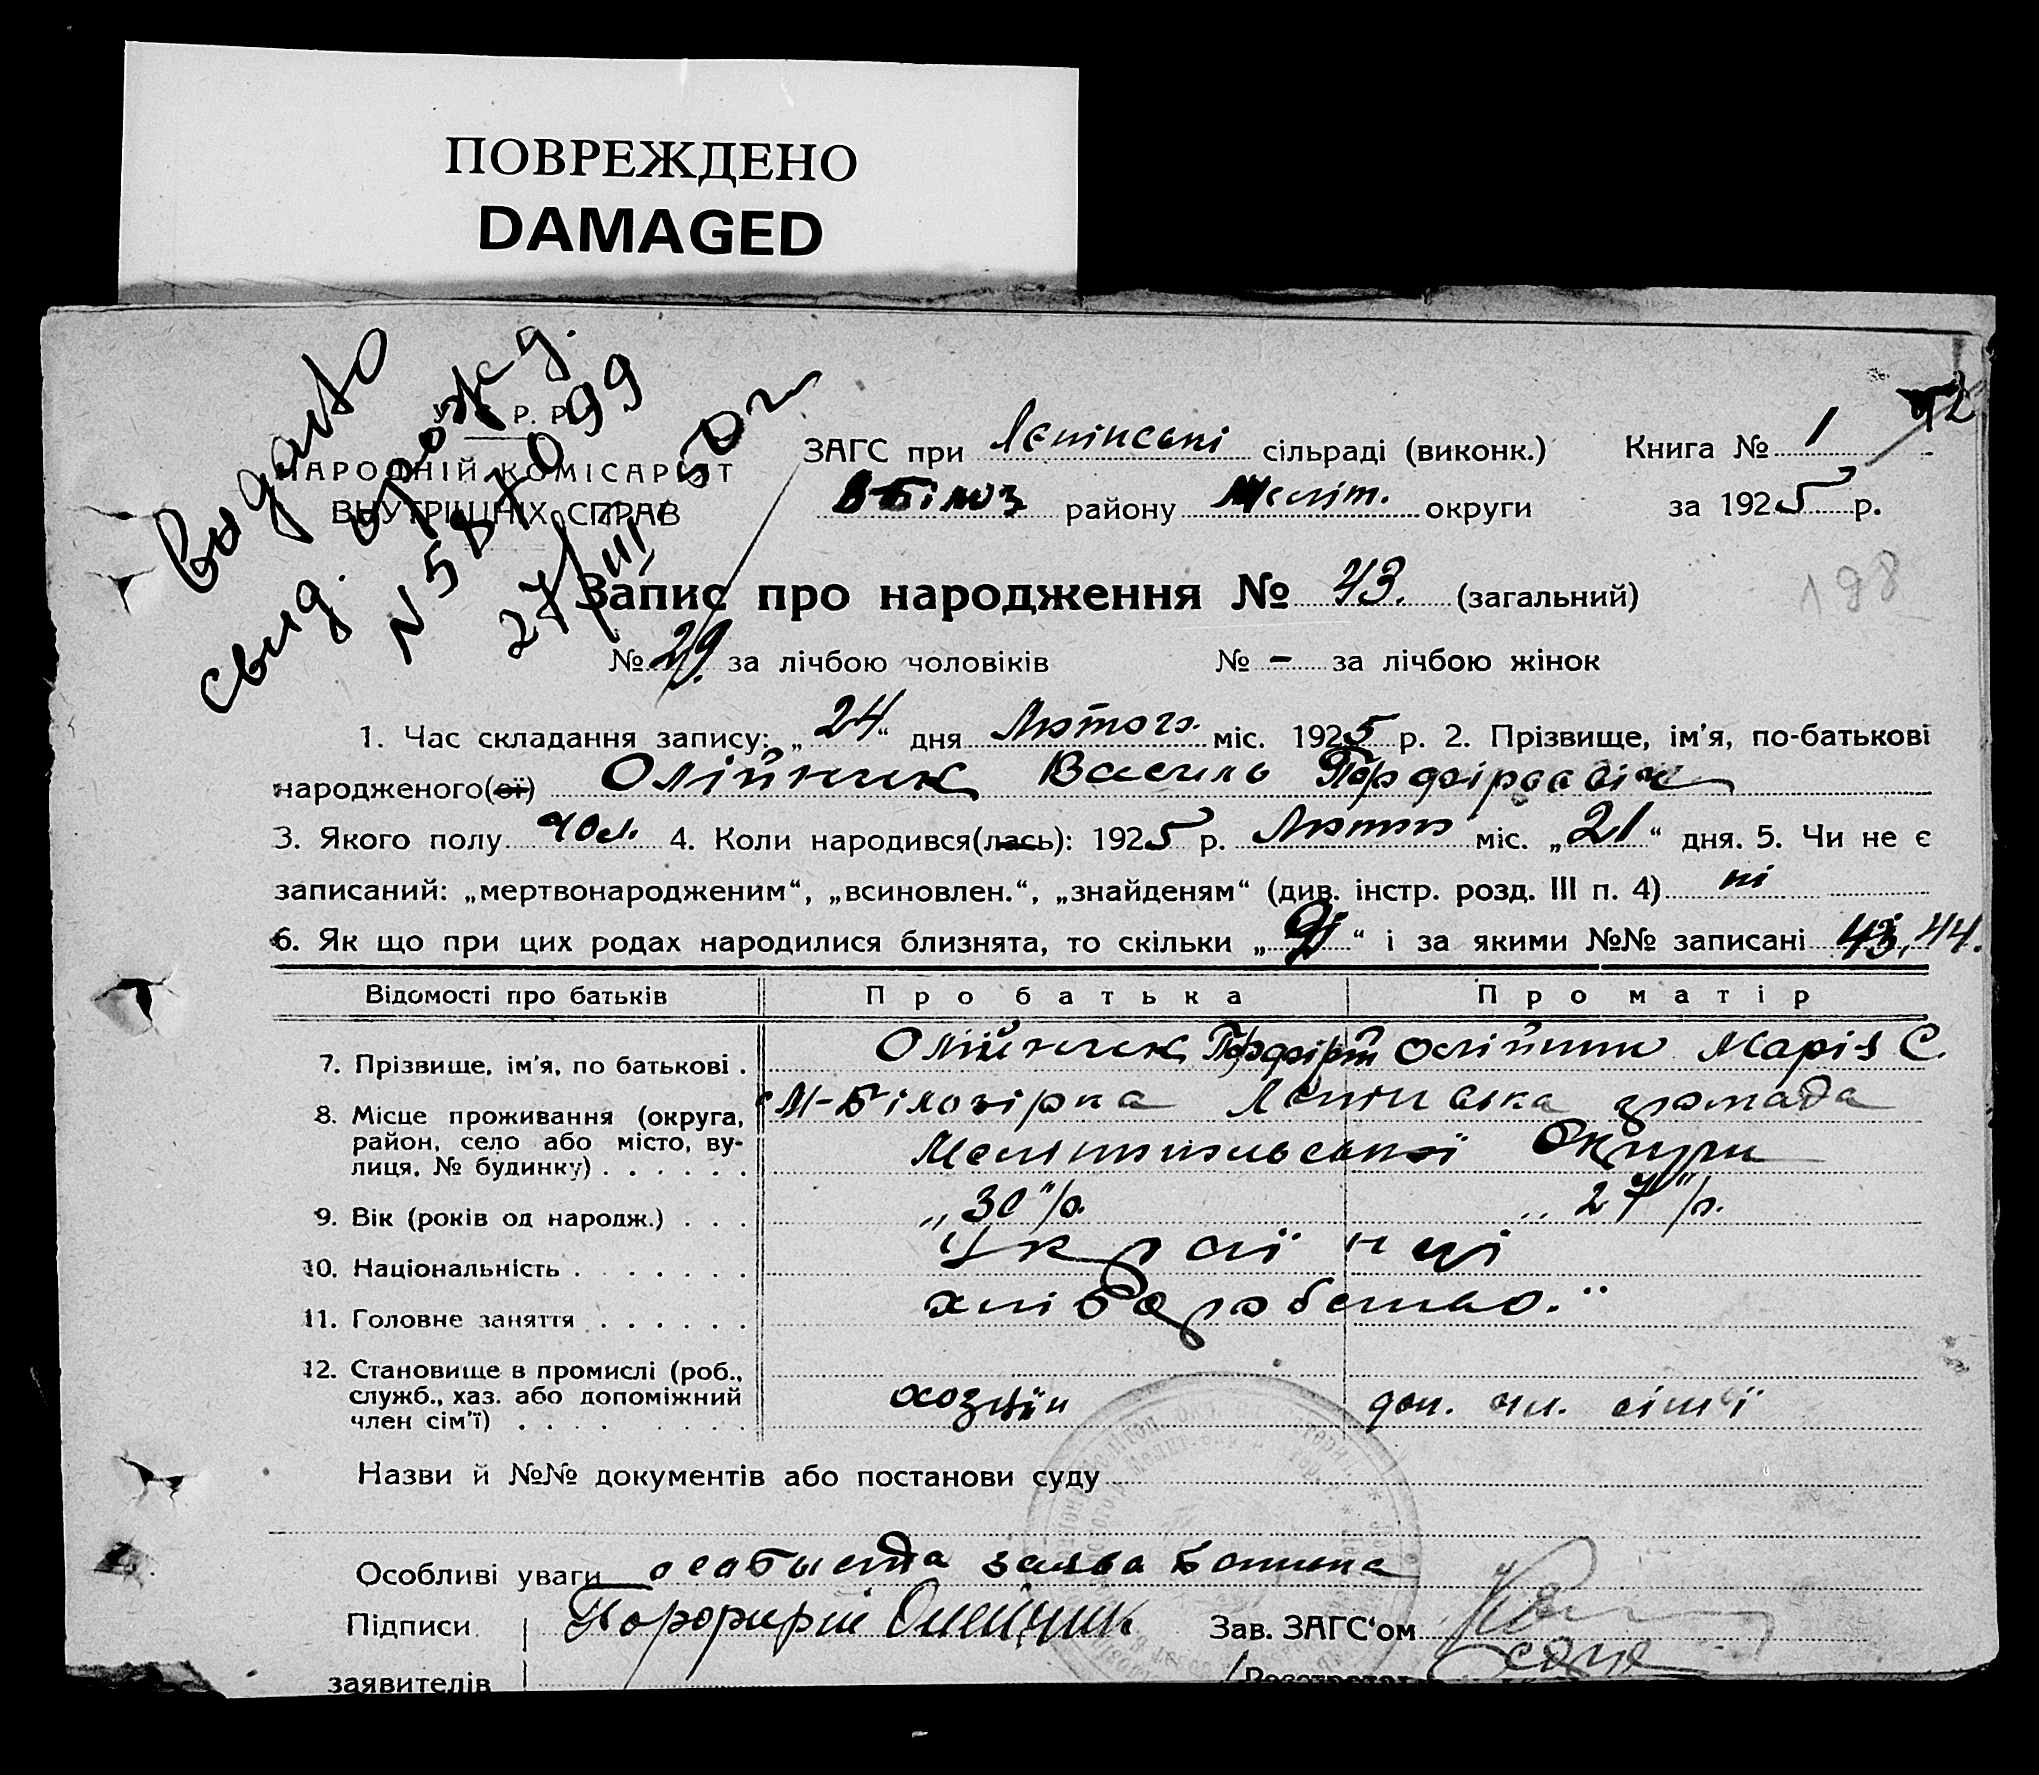 ПОВРЕЖДЕНО
DAMAGED
выдано
свид. о рожд.
N
27/III
У. С. Р. Р.
НАРОДНІЙ КОМІСАРІЯТ
ВНУТРІШНІХ СПРАВ
ЗАГС при Ленінській сільраді (виконк.) Книга № 1
В-Білоз району Меліт. округи за 1925 р.
198
Запис про народження № 43. (загальний)
№ 29. за лічбою чоловіків № - за лічбою жінок
1. Час складання запису: „24“ дня Лютого міс. 1925 р. 2. Прізвище, ім'я, по-батькові
народженого(ої) Олійник Василь Порфірович
3. Якого полу чол. 4. Коли народився(лась): 1925 р. Лютого міс. „21“ дня. 5. Чи не є
записаний: „мертвонародженим“, „всиновлен.“, „знайденям“ (див. інстр. розд. III п. 4) ні
6. Як що при цих родах народилися близнята, то скільки „2“ і за якими №№ записані 43, 44.
Відомості про батьків Про батька Про матір
7. Прізвище, ім'я, по батькові . Олійник Порфірій Олійник Марія С.
8. Місце проживання (округа, М-Білозірка Ленінська громада
район, село або місто, ву- Мелітопольської Округи
лиця, № будинку) . . . . . .
9. Вік (років од народж.) . . . „30“ р. „27“ р.
10. Національність . . . . . . . Українці
11. Головне заняття . . . . . . хліборобство.
12. Становище в промислі (роб.,
служб., хаз. або допоміжний хозяїн доп. чл. сім'ї
член сім'ї) . . . .
Назви й №№ документів або постанови суду
Особливі уваги особиста заява батька
Підписи Порфирій Олейник Зав. ЗАГС'ом
заявителів Реєстратор